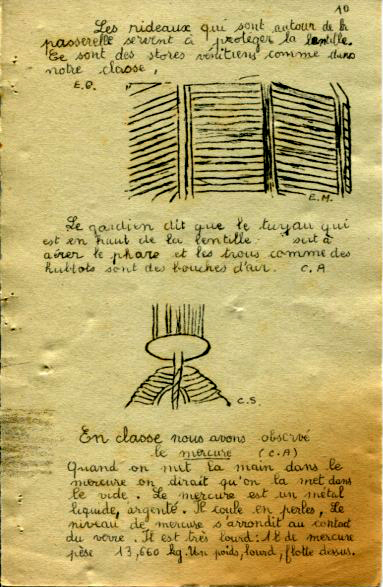 10
Les rideaux qui sont autour de la
passerelle servent à protéger la lentille.
Ce sont des stores vénitiens comme dans
notre classe,
E.G.
E.M.
Le gardien dit que le tuyau qui
est en haut de la lentille sert à
aérer le phare et les trous comme des
hublots sont des bouches d'air. C.A
C.S.
En classe nous avons observé
le mercure (C.A)
Quand on met la main dans le
mercure on dirait qu'on la met dans
le vide. Le mercure est un métal
liquide, argenté. Il coule en perles, Le
niveau de mercure s'arrondit au contact
du verre. Il est très lourd: 1l de mercure
pèse 13,660 kg. Un poids, lourd, flotte dessus.